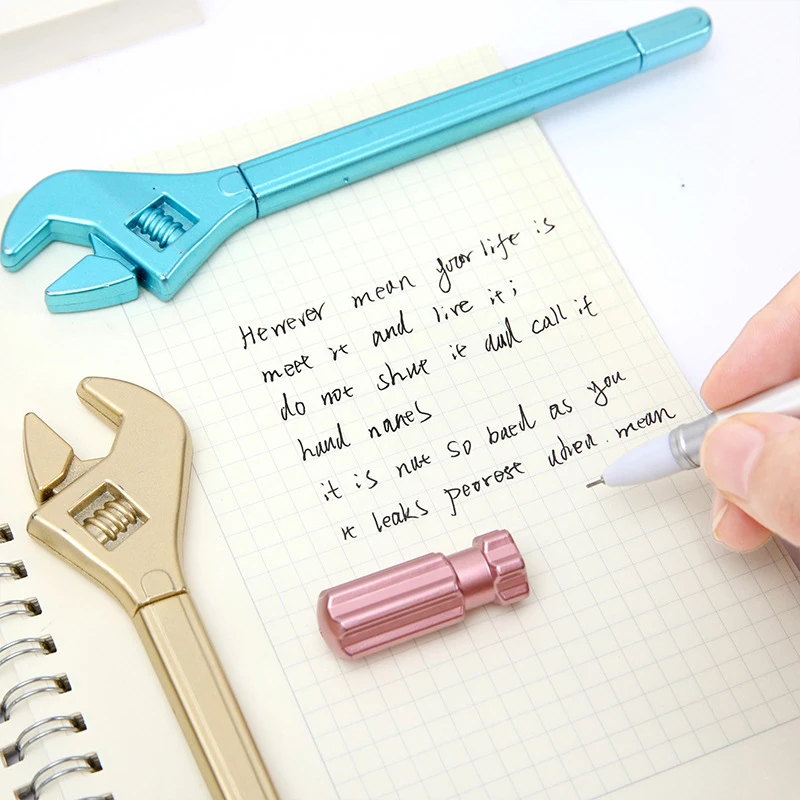 Herrever mean your life is
meet it and live it;
do not shut it and call it
hand names
it is not so baed as you
it leaks peorest when mean